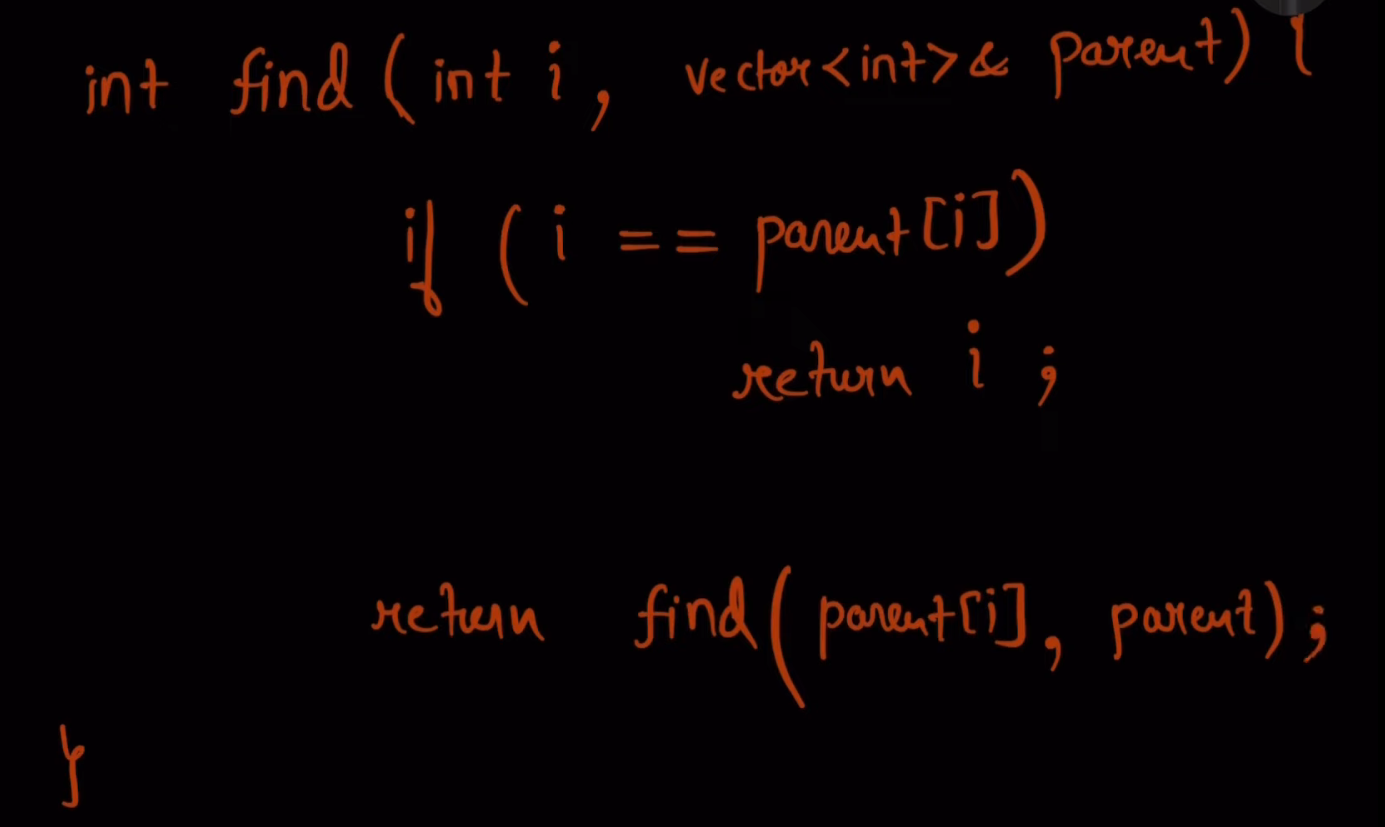 int find (int i, vector<int>& parent) {
if (i == parent[i])
return i ;
return find(parent[i], parent);
}